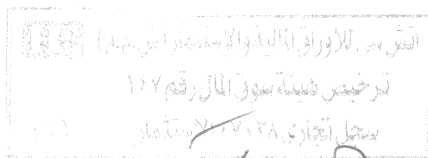 اتش سي للاوراق المالية والاستثمار (ش.م.م)
ترخيص هيئة سوق المال رقم ١٠٧
سجل تجاري الاستثمار